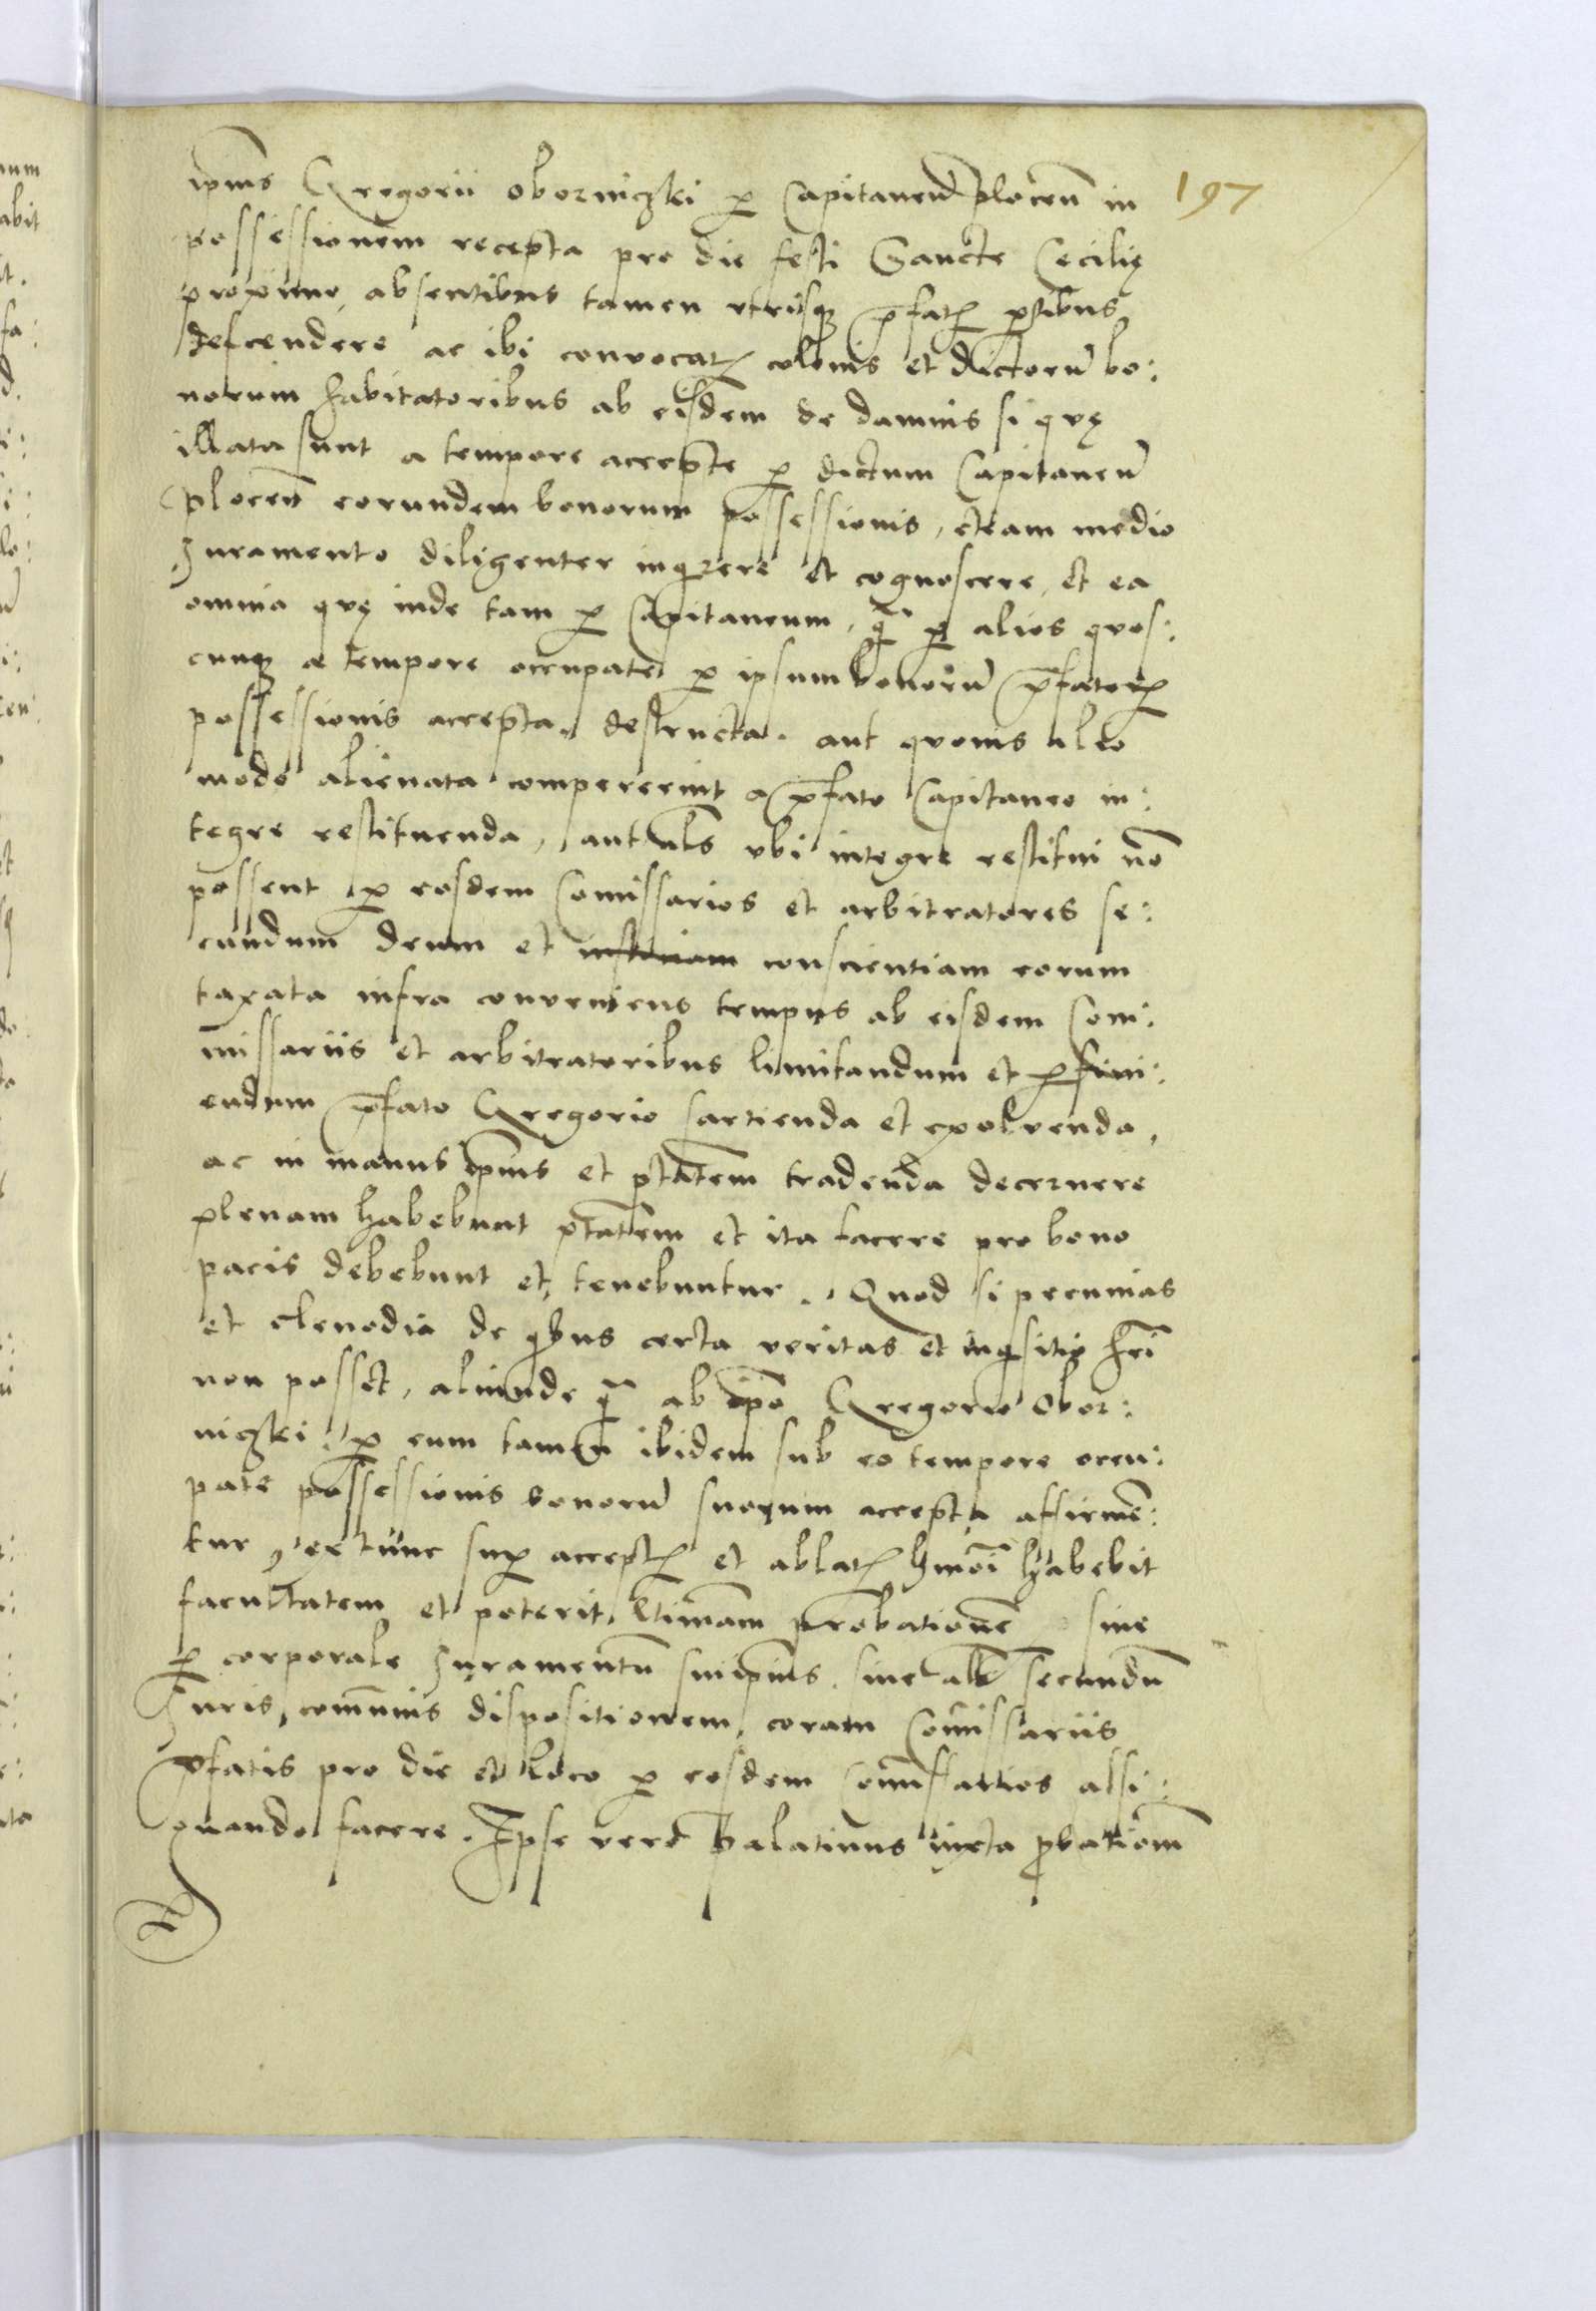 197
ipīus Gregorii oborniczki p̱ Capitaneū plocen̄ in
possessionem recepta pro die festi Sancte Cecilię
proximo, absentibus tamen vtrisqꝫ p̄fatꝭ ꝑtibus
descendere ac ibi convocatꝭ colonis et dictorū bo:
norum habitatoribus ab eisdem de damnis si quę
illata sunt a tempore accepte ꝑ dictum Capitaneū
plocen̄ eorundem bonorum possessionis, etiam medio
Juramento diligenter inqͥrere et cognoscere, et ea
omnia quę inde tam ꝑ Capitaneum, q̄ ꝑ alios quos:
cunqꝫ a tempore occupate ꝑ ipsum bonorū p̄fatorꝭ
possessionis accepta, destructa, aut quouis alio
modo alienata compererint a p̄fato Capitaneo in:
tegre restituenda, aut als vbi integre restitui nō
possent ꝑ eosdem Comissarios et arbitratores se:
cundum deum et conscientiam eorum
taxata infra conveniens tempus ab eisdem Com:
missariis et arbitratoribus limitandum et p̄fini:
endum p̄fato Gregorio sartienda et exolvenda,
ac in manus ipīus et ptātem tradenda decernere
plenam habebunt ptātem et ita facere pro bono
pacis debebunt et tenebuntur. Quod si pecunias
et clenodia de qͥbus certa veritas et inqͥsitio fri
non posset, aliunde q̄ ab ipō Gregorio Obor:
niczki, ꝑ eum tamen ibidem sub eo tempore occu:
pate possessionis bonorū suorum accepta affirmē:
tur, ex tunc suꝑ acceptꝭ et ablatꝭ hmōi habebit
facultatem et poterit ltimam probationē sive
ꝑ corporale Juramentū sui ipīus, sive alr̄ secundū
Juris com̄unis dispositionem, coram Com̄issariis
p̄fatis pro die et loco ꝑ eosdem Com̄issarios assi:
gnando facere. Ipse vero palatinus iuxta ꝓbationem